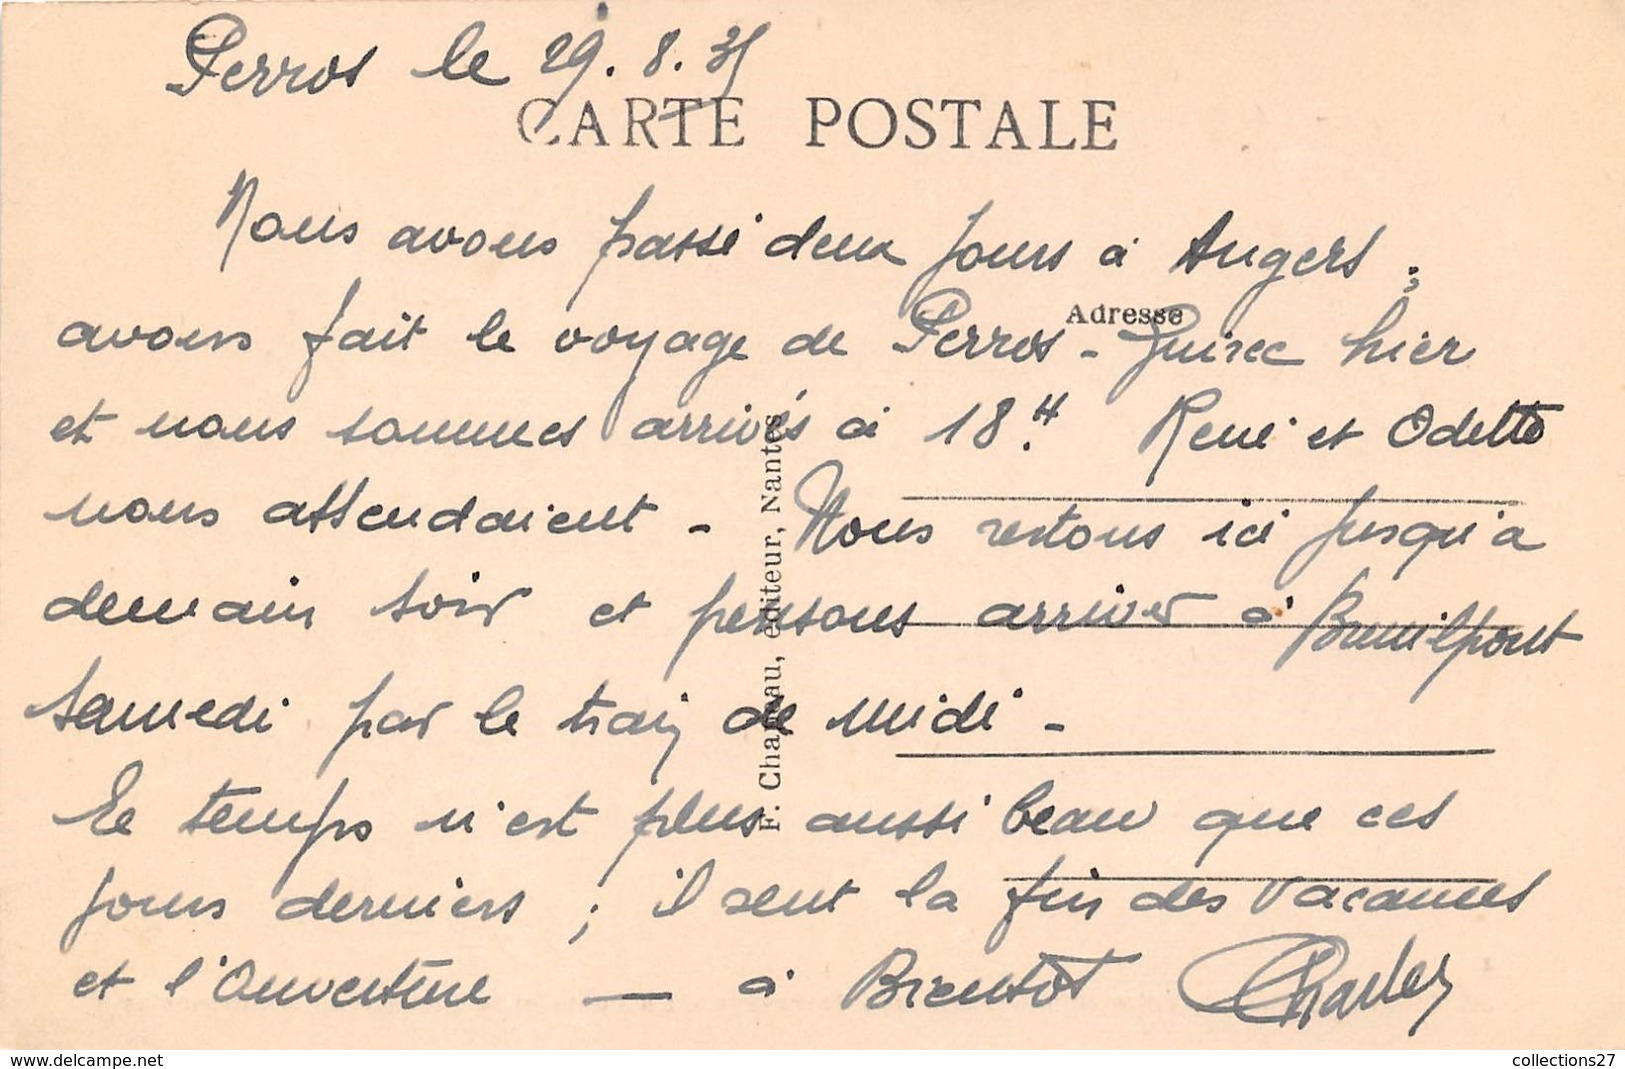 Perros le 29.8.35
CARTE POSTALE
Nous avons passé deux jours à Angers ;
Adresse
avons fait le voyage de Perros-Guirec hier
et nous sommes arrivés à 18.H René et Odette
nous attendaient - Nous restons ici jusqu'à
demain soir et pensons arriver à Breuilpont
samedi par le train de midi -
Le temps n'est plus aussi beau que ces
jours derniers ; il sent la fin des vacances
et l'Ouverture — à Bientôt Charles
F. Chapeau, éditeur, Nantes
www.delcampe.net
collections27